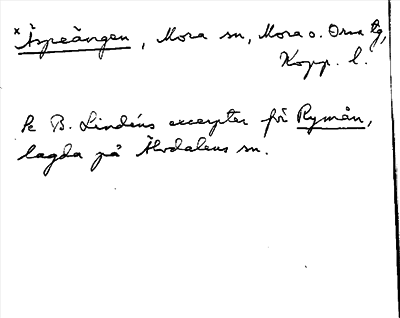 × Äspeängen, Mora sn, Mora o. Orsa tg,
Kopp. l.
Se B. Lindéns excerpter för Rymån,
lagda på Älvdalens sn.